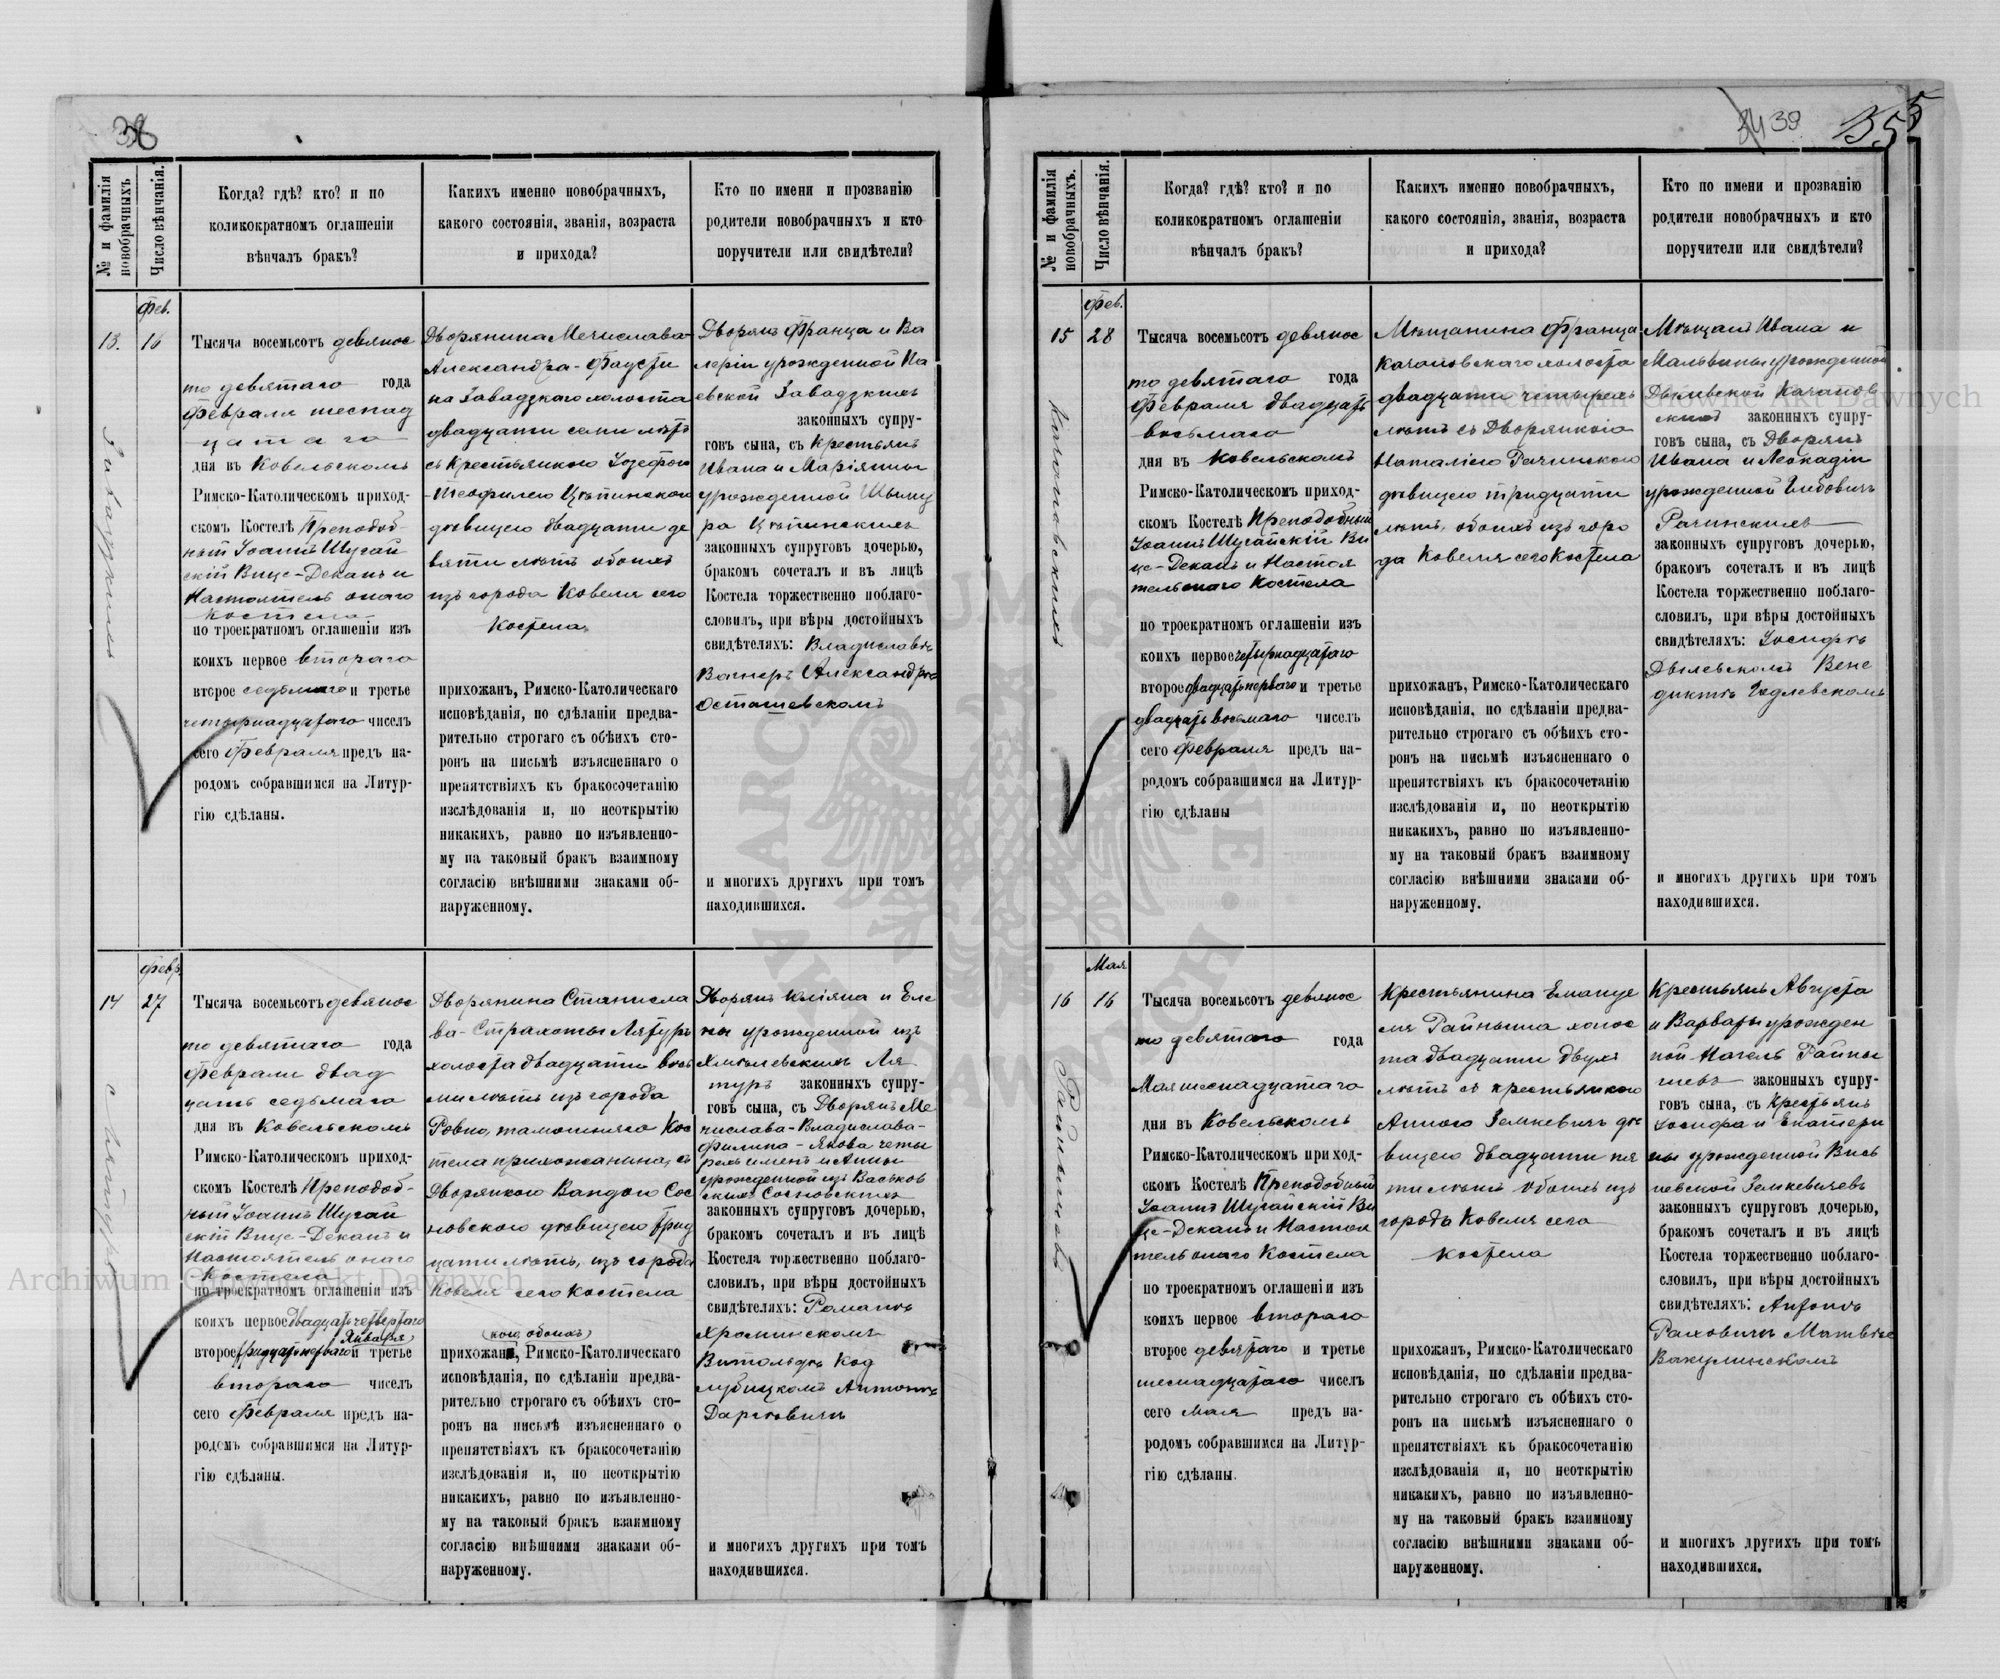 38
№ и фамилія новобрачныхъ
Число вѣнчанія.
Когда? гдѣ? кто? и по
коликократномъ оглашеніи
вѣнчалъ бракъ?
Какихъ именно новобрачныхъ,
какого состоянія, званія, возраста
и прихода?
Кто по имени и прозванію
родители новобрачныхъ и кто
поручители или свидѣтели?
Фев.
13. 16
Тысяча восемьсотъ девянос
то девятаго года
Февраля шеснад
цатаго
дня въ Ковельскомъ
Римско-Католическомъ приход-
скомъ Костелѣ Преподоб-
ный Іоаннъ Шугай
скій Вице-Деканъ и
Настоятель онаго
Костела
по троекратномъ оглашеніи изъ
коихъ первое втораго
второе седьмаго и третье
четырнадцатаго чиселъ
сего Февраля предъ на-
родомъ собравшимся на Литур-
гію сдѣланы.
Дворянина Мечислава-
Александра-Фаусти
на Завадзкаго холоста
двадцати семи лѣтъ
съ Крестьянкою Іозефою
-Теофилею Цѣпинскою
дѣвицею двадцати де
вяти лѣтъ обоихъ
изъ города Ковеля сего
Костела
прихожанъ, Римско-Католическаго
исповѣданія, по сдѣланіи предва-
рительно строгаго съ обѣихъ сто-
ронъ на письмѣ изъясненнаго о
препятствіяхъ къ бракосочетанію
изслѣдованія и, по неоткрытію
никакихъ, равно по изъявленно-
му на таковый бракъ взаимному
согласію внѣшними знаками об-
наруженному.
Дворянъ Франца и Ва
леріи урожденной Па
евской Завадзкихъ
законныхъ супру-
говъ сына, съ Крестьянъ
Ивана и Маріянны
урожденной Швыму
ра Цѣпинскихъ
законныхъ супруговъ дочерью,
бракомъ сочеталъ и въ лицѣ
Костела торжественно поблаго-
словилъ, при вѣры достойныхъ
свидѣтеляхъ: Владиславѣ
Вагнеръ Александрѣ
Осташевскомъ
и многихъ другихъ при томъ
находившихся.
Завадзкихъ
Февр.
14 27
Тысяча восемьсотъ девянос
то девятаго года
Февраля двад
цать седьмаго
дня въ Ковельскомъ
Римско-Католическомъ приход-
скомъ Костелѣ Преподоб-
ный Іоаннъ Шугай
скій Вице-Деканъ и
Настоятель онаго
Костела
по троекратномъ оглашеніи изъ
коихъ первое двадцать четвертаго
Января
второе тридцать перваго и третье
втораго чиселъ
сего Февраля предъ на-
родомъ собравшимся на Литур-
гію сдѣланы.
Дворянина Станисла
ва-Страхоты Лятуръ
холоста двадцати вось
ми лѣтъ изъ города
Ровно, тамошняго Кос
тела прихожанина, съ
Дворянкою Вандою Сос
новскою дѣвицею трид
цати лѣтъ, изъ города
Ковеля сего Костела
прихожанъ, Римско-Католическаго
исповѣданія, по сдѣланіи предва-
рительно строгаго съ обѣихъ сто-
ронъ на письмѣ изъясненнаго о
препятствіяхъ къ бракосочетанію
изслѣдованія и, по неоткрытію
никакихъ, равно по изъявленно-
му на таковый бракъ взаимному
согласію внѣшними знаками об-
наруженному.
Дворянъ Юліяна и Еле
ны урожденной изъ
Хмѣлевскихъ Ля
туръ законныхъ супру-
говъ сына, съ Дворянъ Ме
числава-Владислава-
Филипа-Якова четы
рехъ именъ и Анны
урожденной изъ Васьков
скихъ Сосновскихъ
законныхъ супруговъ дочерью,
бракомъ сочеталъ и въ лицѣ
Костела торжественно поблаго-
словилъ, при вѣры достойныхъ
свидѣтеляхъ: Романѣ
Хроминскомъ
Витольдѣ Код
лубицкомъ Антонѣ
Даргевичъ
и многихъ другихъ при томъ
находившихся.
Лятуръ
39
355
№ и фамилія новобрачныхъ.
Число вѣнчанія.
Когда? гдѣ? кто? и по
коликократномъ оглашеніи
вѣнчалъ бракъ?
Какихъ именно новобрачныхъ,
какого состоянія, званія, возраста
и прихода?
Кто по имени и прозванію
родители новобрачныхъ и кто
поручители или свидѣтели?
Фев.
15 28
Тысяча восемьсотъ девянос
то девятаго года
Февраля двадцать
восьмаго
дня въ Ковельскомъ
Римско-Католическомъ приход-
скомъ Костелѣ Преподобный
Іоаннъ Шугайскій Ви
це-Деканъ и Настоя
тель онаго Костела
по троекратномъ оглашеніи изъ
коихъ первое четырнадцатаго
второе двадцать перваго и третье
двадцать восьмаго чиселъ
сего Февраля предъ на-
родомъ собравшимся на Литур-
гію сдѣланы
Мѣщанина Франца
Качановскаго холоста
двадцати четырехъ
лѣтъ съ Дворянкою
Наталіею Рачинскою
дѣвицею тридцати
лѣтъ, обоихъ изъ горо
да Ковеля сего Костела
прихожанъ, Римско-Католическаго
исповѣданія, по сдѣланіи предва-
рительно строгаго съ обѣихъ сто-
ронъ на письмѣ изъясненнаго о
препятствіяхъ къ бракосочетанію
изслѣдованія и, по неоткрытію
никакихъ, равно по изъявленно-
му на таковый бракъ взаимному
согласію внѣшними знаками об-
наруженному.
Мѣщанъ Ивана и
Мальвины урожденной
Дылевской Качанов
скихъ законныхъ супру-
говъ сына, съ Дворянъ
Ивана и Леокадіи
урожденной Глибовичъ
Рачинскихъ
законныхъ супруговъ дочерью,
бракомъ сочеталъ и въ лицѣ
Костела торжественно поблаго-
словилъ, при вѣры достойныхъ
свидѣтеляхъ: Іосифѣ
Дылевскомъ Вене
диктѣ Годлевскомъ
и многихъ другихъ при томъ
находившихся.
Качановскихъ
Мая
16 16
Тысяча восемьсотъ девянос
то девятаго года
Мая шеснадцатаго
дня въ Ковельскомъ
Римско-Католическомъ приход-
скомъ Костелѣ Преподобный
Іоаннъ Шугайскій Ви
це-Деканъ и Настоя
тель онаго Костела
по троекратномъ оглашеніи изъ
коихъ первое втораго
второе девятаго и третье
шеснадцатаго чиселъ
сего Мая предъ на-
родомъ собравшимся на Литур-
гію сдѣланы.
Крестьянина Емануе
ля Райныша холос
та двадцати двухъ
лѣтъ съ крестьянкою
Анною Земкевичъ дѣ
вицею двадцати пя
ти лѣтъ обоихъ изъ
города Ковеля сего
Костела
прихожанъ, Римско-Католическаго
исповѣданія, по сдѣланіи предва-
рительно строгаго съ обѣихъ сто-
ронъ на письмѣ изъясненнаго о
препятствіяхъ къ бракосочетанію
изслѣдованія и, по неоткрытію
никакихъ, равно по изъявленно-
му на таковый бракъ взаимному
согласію внѣшними знаками об-
наруженному.
Крестьянъ Августа
и Варвары урожден
ной Нагель Райны
шевъ законныхъ супру-
говъ сына, съ Крестьянъ
Іосифа и Екатери
ны урожденной Вись
невской Земкевичевъ
законныхъ супруговъ дочерью,
бракомъ сочеталъ и въ лицѣ
Костела торжественно поблаго-
словилъ, при вѣры достойныхъ
свидѣтеляхъ: Антонѣ
Раховичъ Матвѣе
Вакулинскомъ
и многихъ другихъ при томъ
находившихся.
Райнышевъ
Archiwum Główne Akt Dawnych
Archiwum Główne Akt Dawnych